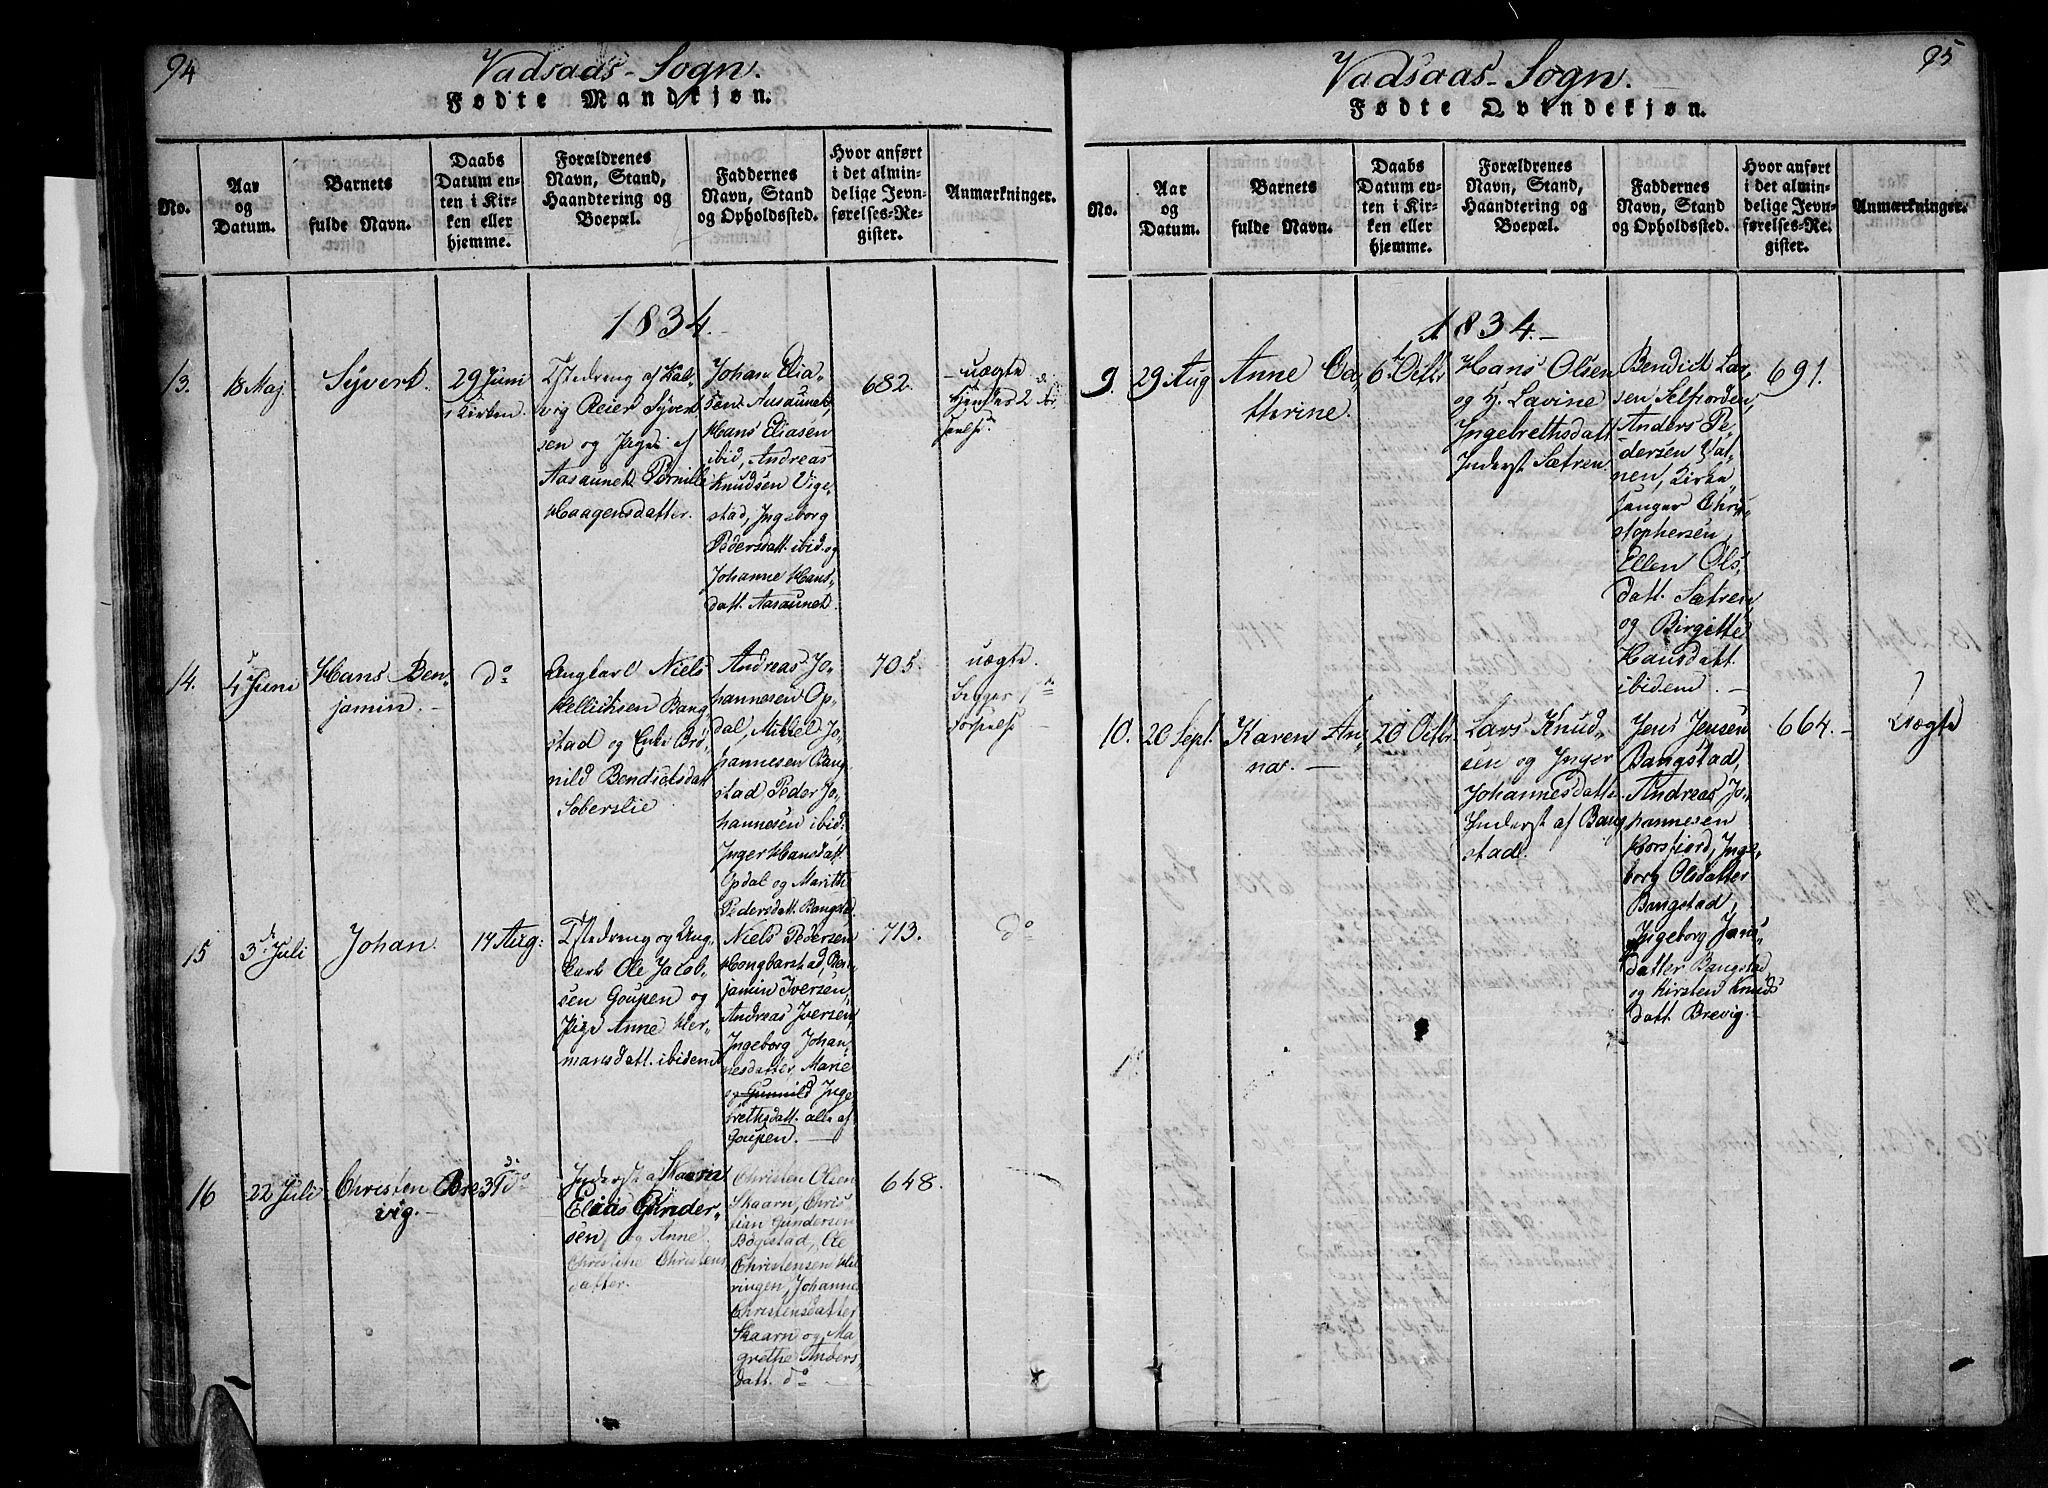 94
Vadsaas-Sogn.
Fødte Mandkjøn.
No.
Aar
og
Datum.
Barnets
fulde Navn.
Daabs
Datum en-
ten i Kir-
ken eller
hjemme.
Forældrenes
Navn, Stand,
Haandtering og
Boepæl.
Faddernes
Navn, Stand
og Opholdssted.
Hvor anført
i det almin-
delige Jevn-
førelses-Re-
gister.
Anmærkninger.
1834.
13.
18 Maj.
Syvert.
29 Juni
i Kirken.
af Kal-
vig Reier Syvert-
sen og Pige af
Aasaunet Pernille
Haagensdatter.
Johan Elia-
sen Aasaunet,
Hans Eliasen
ibid, Andreas
Knudsen Vige-
stad, Ingeborg
Pedersdatt. ibid. og
Johanne Hans-
datt. Aasaunet.
682.
uægte
Hendes 2
14.
4 Juni
Hans Ben-
jamin.
do
Ungkarl Niels
Bang-
stad og Enke
nild Bendictsdatt
Soberslie.
Andreas Jo-
hannesen Op-
dal, Mikkel Jo-
hannesen Bang-
stad Peder Jo-
hannesen ibid.
Inger Hansdatt.
Opdal og Marith
Pedersdatt. Bangstad.
705.
uægte.
Begges 1te
15
3d Juli
Johan.
14 Aug:
og Ung-
karl Ole Jacob-
sen Goupen og
Pige Anne Her-
mansdatt. ibidem
Niels Pedersen
Hongbarstad, Ben-
jamin Iversen,
Andreas Iversen,
Ingeborg Johan-
nesdatter, Marie
og Gunnild Inge-
brethsdatt. alle af
Goupen.
713.
do
16
22 Juli
Christen Bre-
vig.
31 do
Inderst af Skaarn
Elias Gunder-
sen, og Anne
Christine Christens
datter.
Christen Olsen
Skaarn, Chris-
tian Gundersen
Bogestad, Ole
Christensen
Johanne
Christensdatter
Skaarn og Ma-
grethe Anders
datt. do
648.
95
Vadsaas-Sogn.
Fødte Qvindekjøn.
No.
Aar
og
Datum.
Barnets
fulde Navn.
Daabs
Datum en-
ten i Kir-
ken eller
hjemme.
Forældrenes
Navn, Stand,
Haandtering og
Boepæl.
Faddernes
Navn, Stand
og Opholdssted.
Hvor anført
i det almin-
delige Jevn-
førelses-Re-
gister.
Anmærkninger.
1834.
9.
29 Aug
Anne Ca-
thrine.
6 Octbr
Hans Olsen
og H. Lavine
Ingebrethsdatt
Inderst Sætren.
Bendict Lar-
sen Selfiorden,
Anders Pe-
dersen Vat-
nen, Kirke-
sanger Chri-
stophersen,
Ellen Ols-
datt. Sætren
og Birgitte
Hansdatt.
ibidem.
691.
10.
20 Sept.
Karen An-
na.
20 Octbr
Lars Knud-
sen og Inger
Johannesdatte
Inderst af Bang
stad.
Jens Jensen
Bangstad,
Andreas Jo-
hannesen
Korsfiord, Inge-
borg Olsdatter
Bangstad,
Ingeborg Jens-
datter Bangstad,
og Kirsten Knuds
datt. Brevig.
664.
Uægte